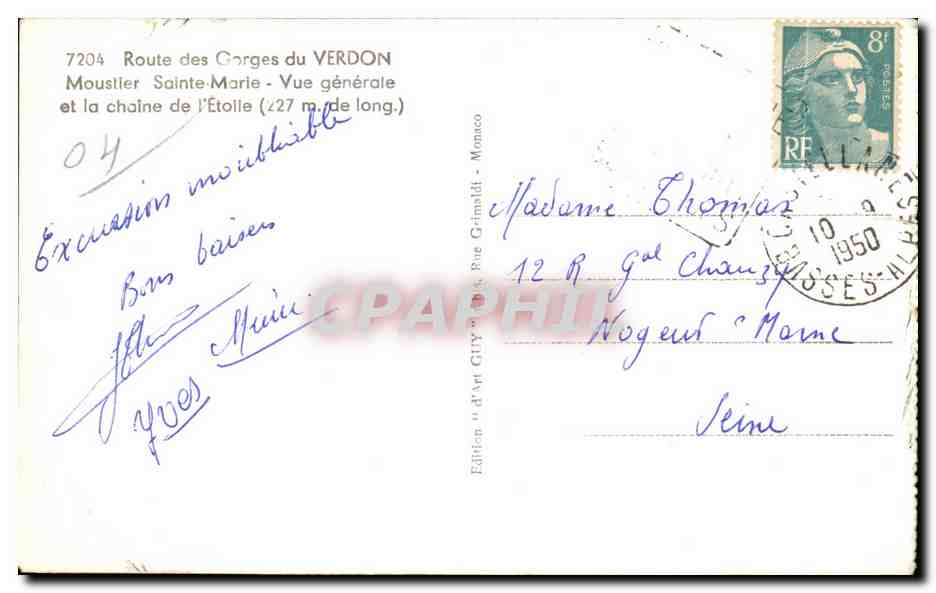 7204 Route des Gorges du VERDON
Moustier Sainte-Marie - Vue générale
et la chaîne de l'Étoile (227 m. de long.)
04
Excursion inoubliable
Bons baisers
Mimi
Yves
Edition " d'Art GUY " Rue Grimaldi - Monaco
8f
POSTES
RF
CASTELLANE
10 9
1950
BASSES-ALPES
Madame Thomas
12 R Gal Chanzy
Nogent s/ Marne
Seine
CPAPHIL